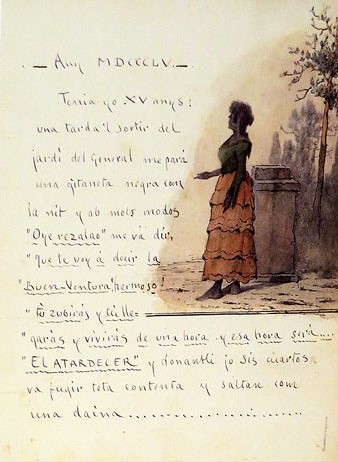 . — Any MDCCCLV. —
Tenia yo XV anys:
una tarda 'l sortir del
jardí del General me pará
una gitaneta negra com
la nit y ab mols modos
"Oye rezalao" me vá dir,
"Que te voy á decir la
"Buen-Ventura, hermoso
"tu zubirás y te lle=
"garás y vivirás de una hora y esa hora será....
"EL ATARDECER" y donantli jo sis cuartos
va fugir tota contenta y saltan com
una daina......................